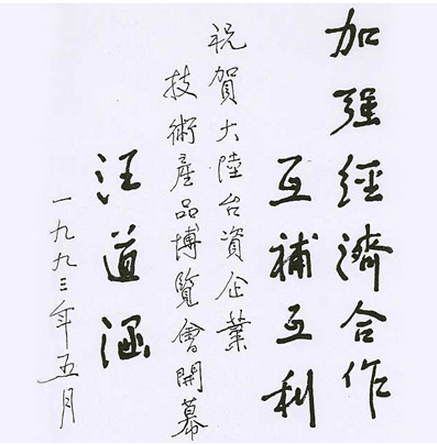 加强經濟合作
互補互利
祝賀大陸台資企業
技術產品博覽會開幕
汪道涵
一九九三年五月